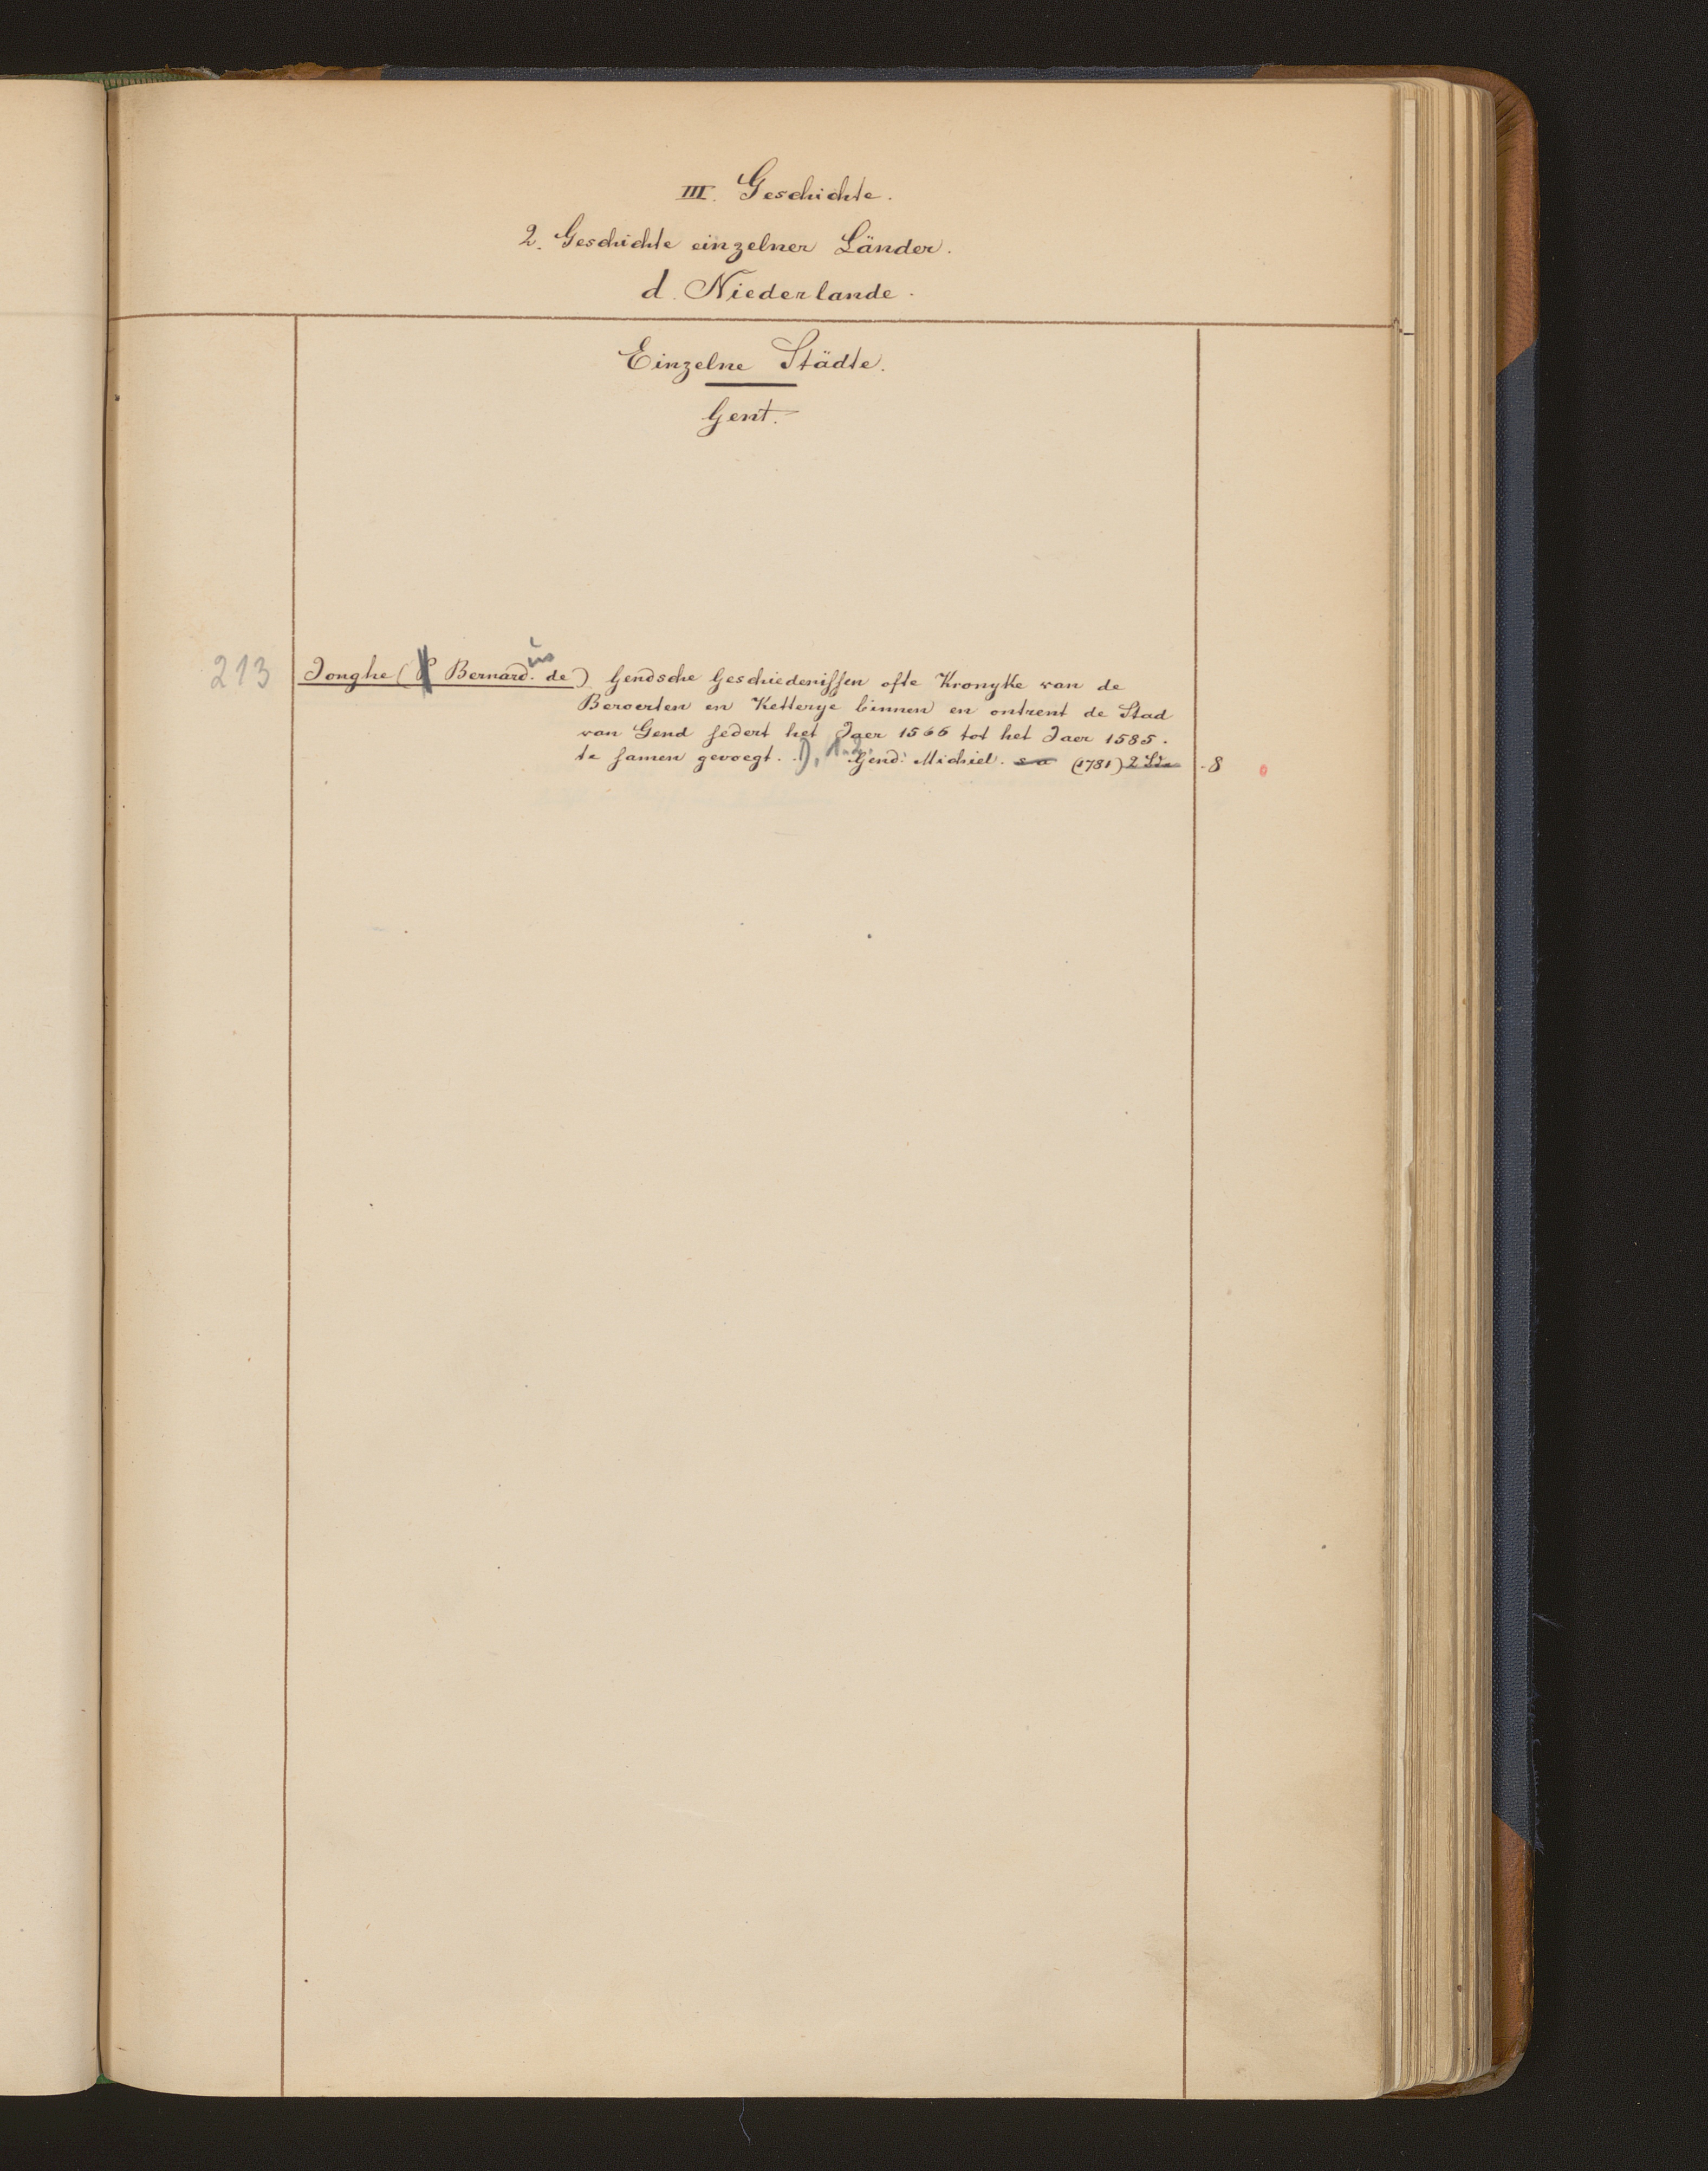 III. Geschichte.
2. Geschichte einzelner Länder.
d. Niederlande.
Einzelne Städte.
Gent.
213 Jonghe (P Bernard. us de) Gendsche Geschiedenissen ofte Kronyke van de
Beroerten en Ketterye binnen en ontrent de Stad
van Gend sedert het Jaer 1566 tot het Jaer 1585.
te samen gevoegt. D, 1.2. Gend: Michiel. s a (1781) 2 8